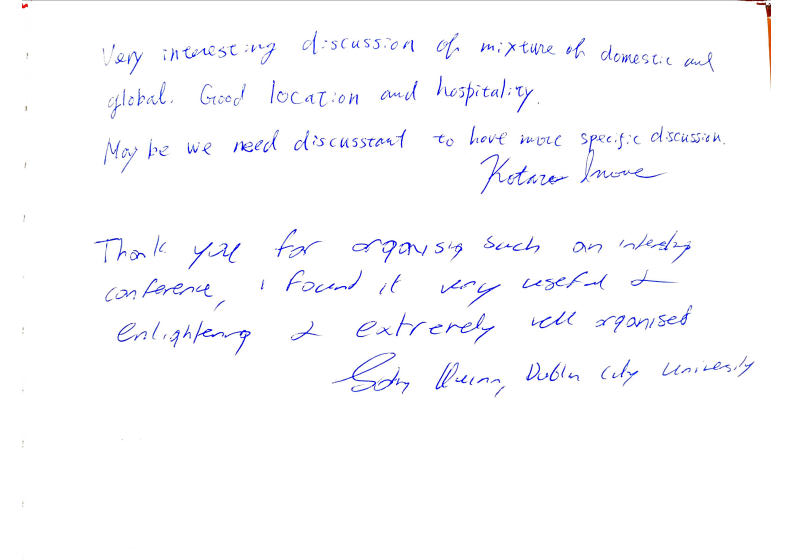 Very interesting discussion of mixture of domestic and
global. Good location and hospitality.
May be we need discusstant to have more specific discussion.
Kotaro Inoue
Thank you for organising such an interesting
conference, I found it very useful &
enlightening & extremely well organised
Quinn, Dublin City University